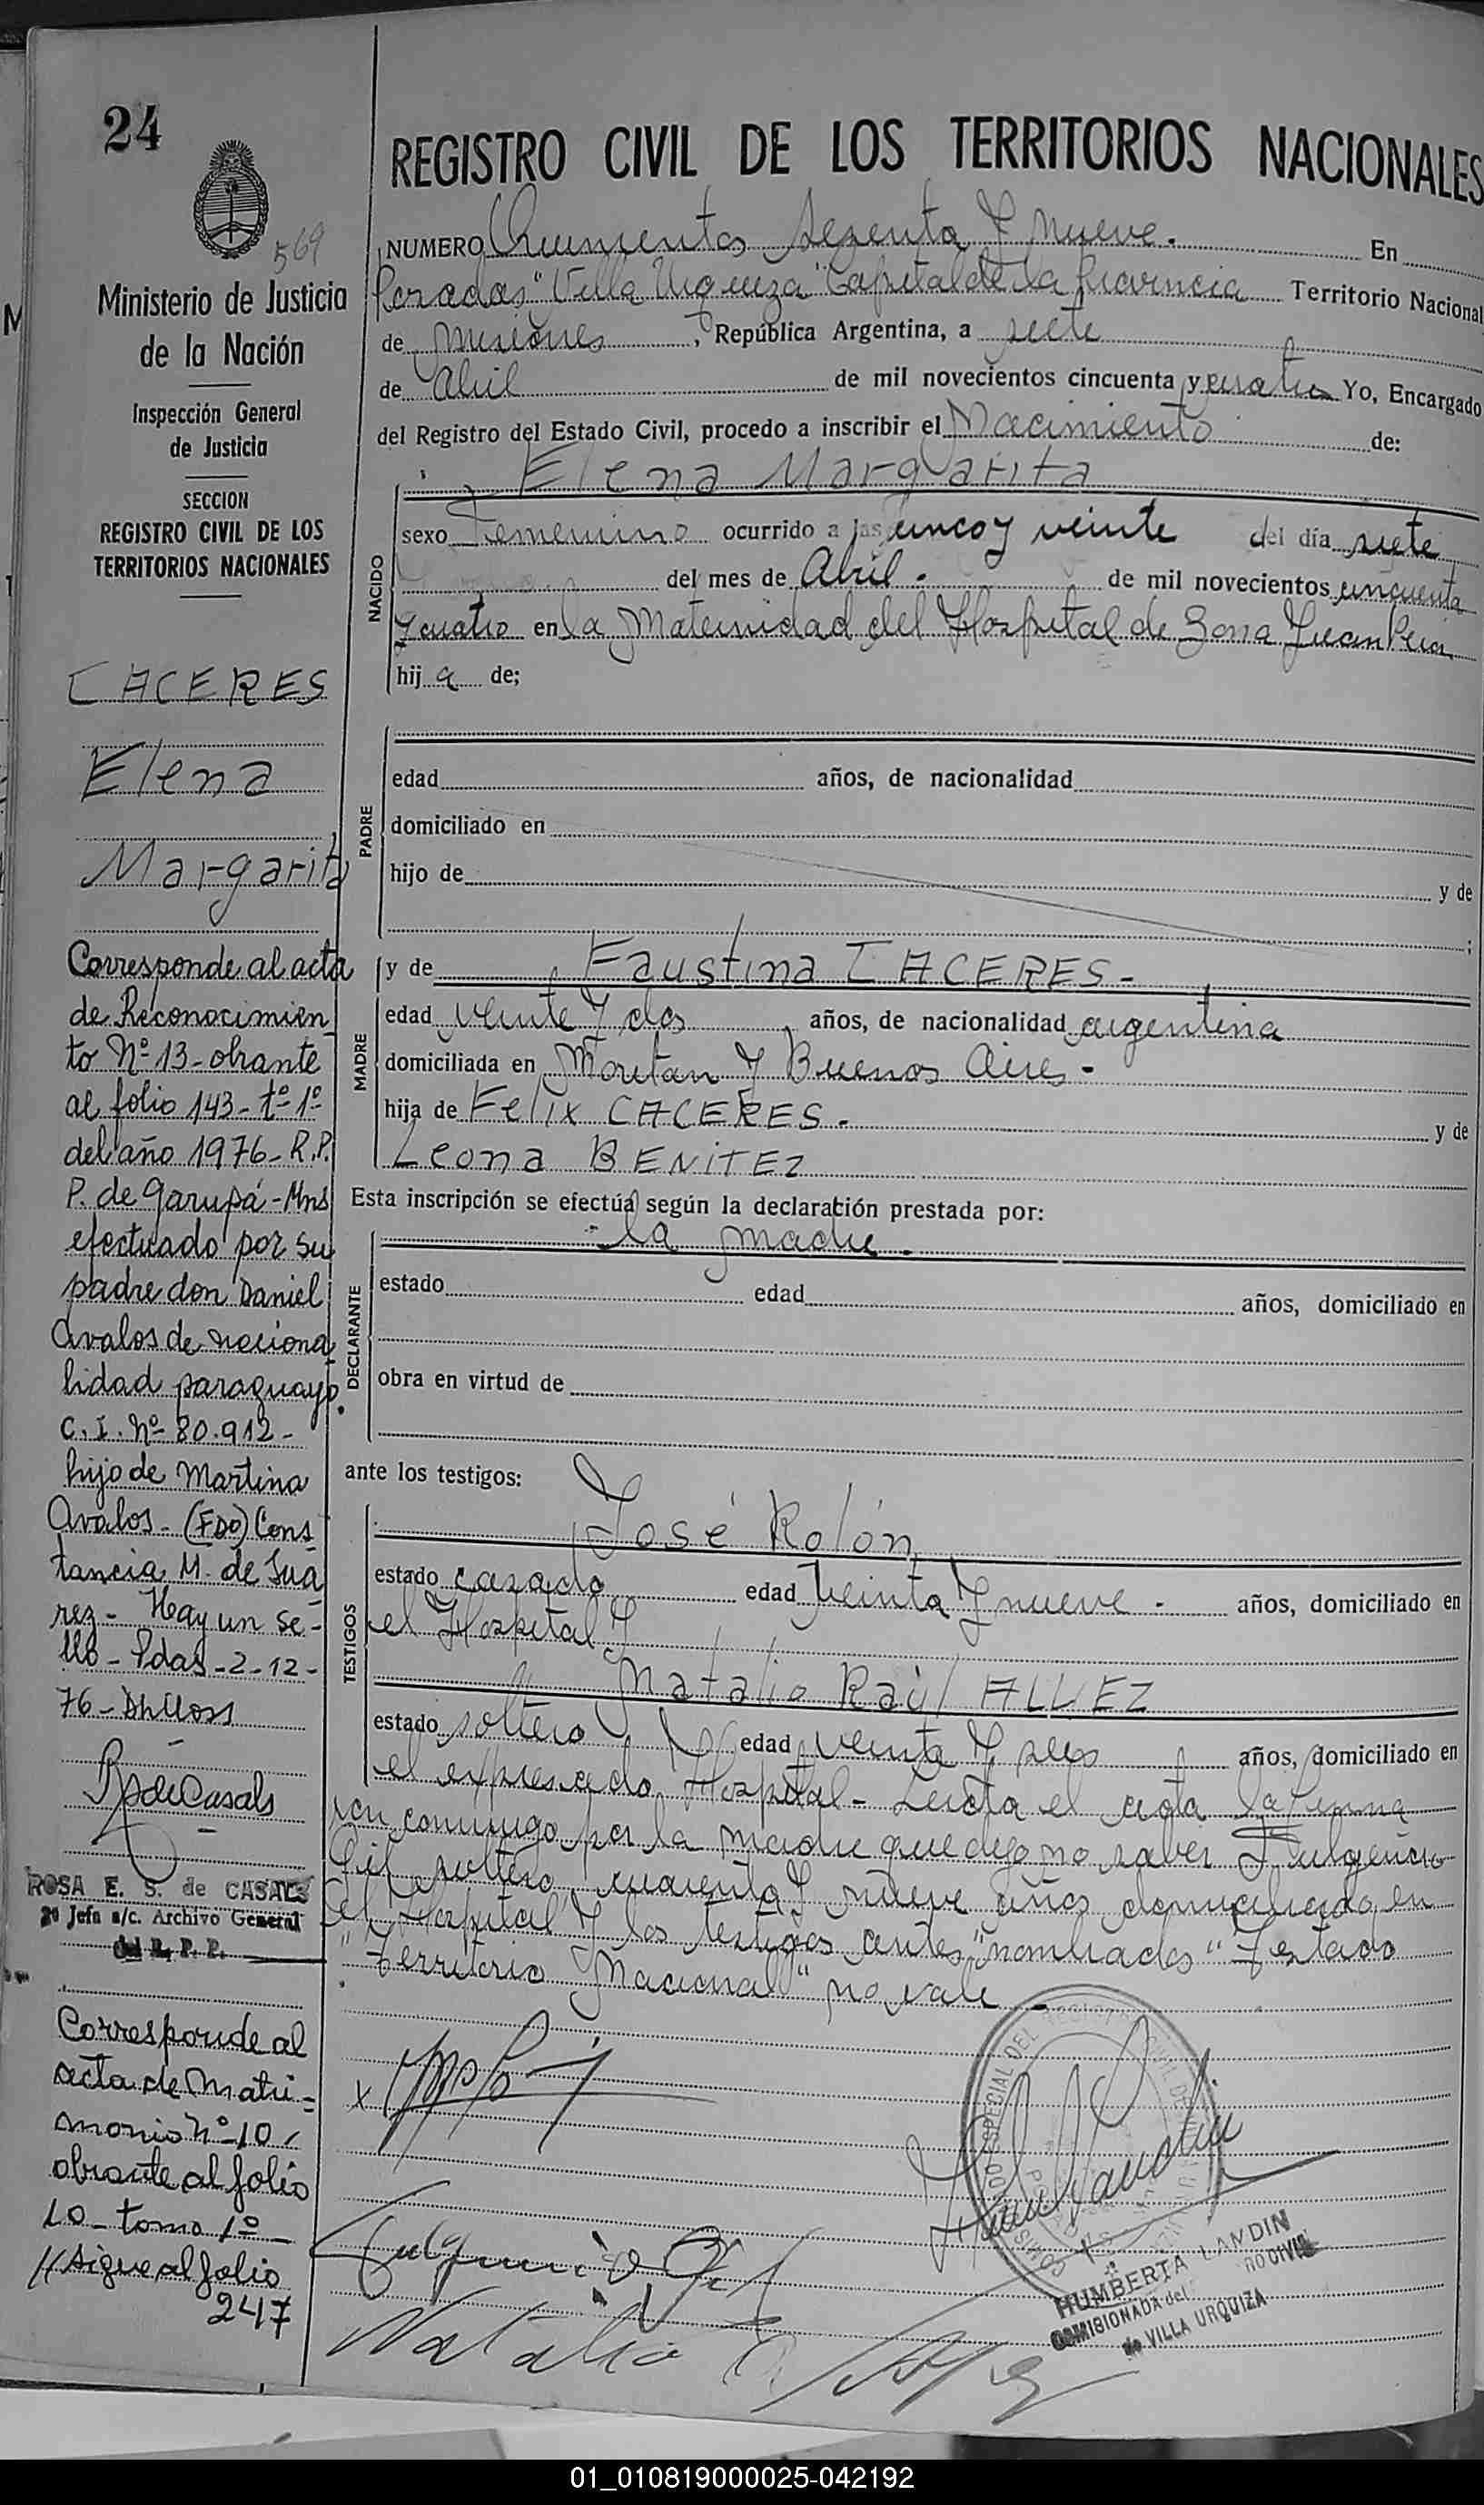 24
569
Ministerio de Justicia
de la Nación
Inspección General
de Justicia
SECCION
REGISTRO CIVIL DE LOS
TERRITORIOS NACIONALES
CACERES
Elena
Margarita
Corresponde al acta
de Reconocimien
to Nº 13 - obrante
al folio 143 - tº 1º
del año 1976 - R.P.
P. de Garupá - Mns
efectuado por su
padre don Daniel
Avalos de naciona
lidad paraguayo.
C.I. Nº 80.912 -
hijo de Martina
Avalos - (FDO) Cons
tancia M. de Suá
rez - Hay un se-
llo - Pdas - 2-12-
76 -
ROSA E. S. de CASALS
2ª Jefa a/c. Archivo General
del R. P. P.
Corresponde al
acta de Matri=
monio Nº 10,
obrante al folio
10 - tomo 1º -
// sigue al folio
247
REGISTRO CIVIL DE LOS TERRITORIOS NACIONALES
NUMERO Quinientos sesenta y nueve. En
Posadas "Villa Urquiza" Capital de la Provincia Territorio Nacional
de Misiones, República Argentina, a siete
de Abril de mil novecientos cincuenta y cuatro Yo, Encargado
del Registro del Estado Civil, procedo a inscribir el Nacimiento de:
Elena Margarita
NACIDO
sexo Femenino ocurrido a las cinco y veinte del día siete
del mes de Abril. de mil novecientos cincuenta
y cuatro en la Maternidad del Hospital de Zona Juan Perón
hija de;
PADRE
edad años, de nacionalidad
domiciliado en
hijo de y de
;
MADRE
y de Faustina CACERES -
edad veinte y dos, años, de nacionalidad argentina
domiciliada en Moritan y Buenos Aires -
hija de Felix CACERES - y de
Leona BENITEZ
Esta inscripción se efectúa según la declaración prestada por:
DECLARANTE
- la madre -
estado edad años, domiciliado en
obra en virtud de
ante los testigos:
TESTIGOS
José Rolón
estado casado edad treinta y nueve - años, domiciliado en
el Hospital y
Natalio Raúl ALLEZ
estado soltero edad veinte y seis años, domiciliado en
el expresado Hospital - Leída el acta la firma
con conmigo por la madre que dijo no saber Fulgencio
Gil soltero, cuarenta y nueve años domiciliado en
el Hospital y los testigos antes "nombrados" Testado
"Territorio Nacional" no vale -
Fulgencio Gil
HUMBERTA LANDIN
COMISIONADA del RO CIVIL
de VILLA URQUIZA
01_010819000025-042192